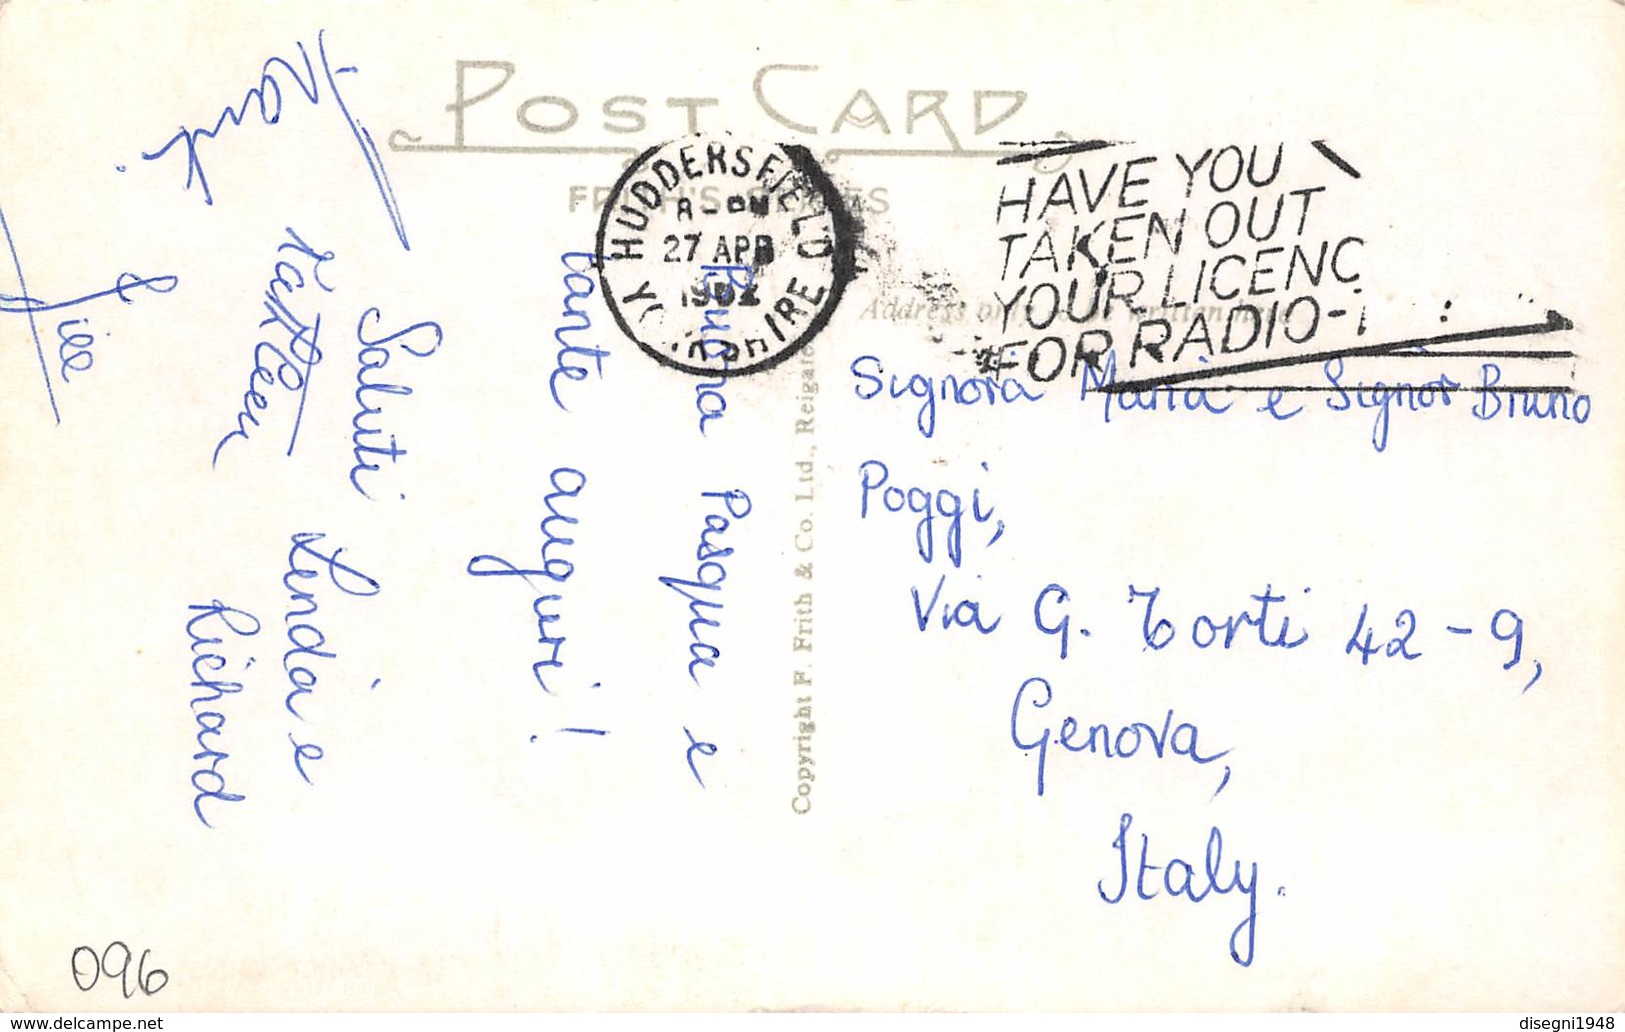 POST CARD
FRITH'S SERIES
HUDDERSFIELD
8-PM
27 APR
1962
YORKSHIRE
HAVE YOU
TAKEN OUT
YOUR LICENC
FOR RADIO-
Address only to be written here
Signora Maria e Signor Bruno
Poggi,
Via G. Torti 42-9,
Genova,
Italy.
Copyright F. Frith & Co. Ltd., Reigate
Buona Pasqua e
tante auguri!
Saluti
Linda e
Richard
Kathleen
Frank.
& Jill
096
disegni1948